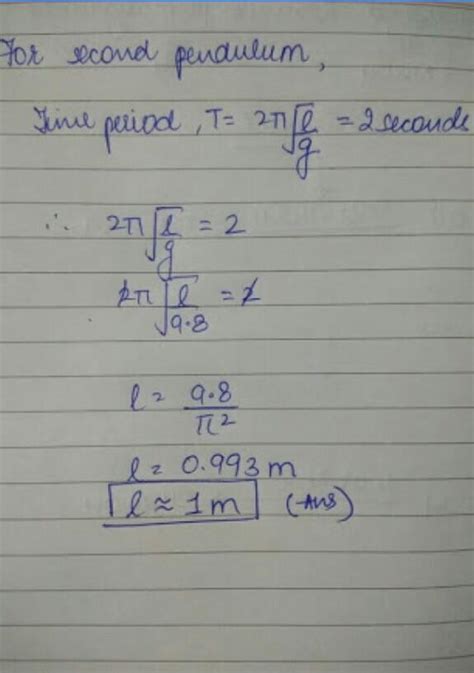 For second pendulum,
Time period, T = 2π√l/g = 2 seconds
∴ 2π√l/g = 2
2π√l/9.8 = 2
l = 9.8/π²
l = 0.993 m
l ≈ 1 m (Ans)